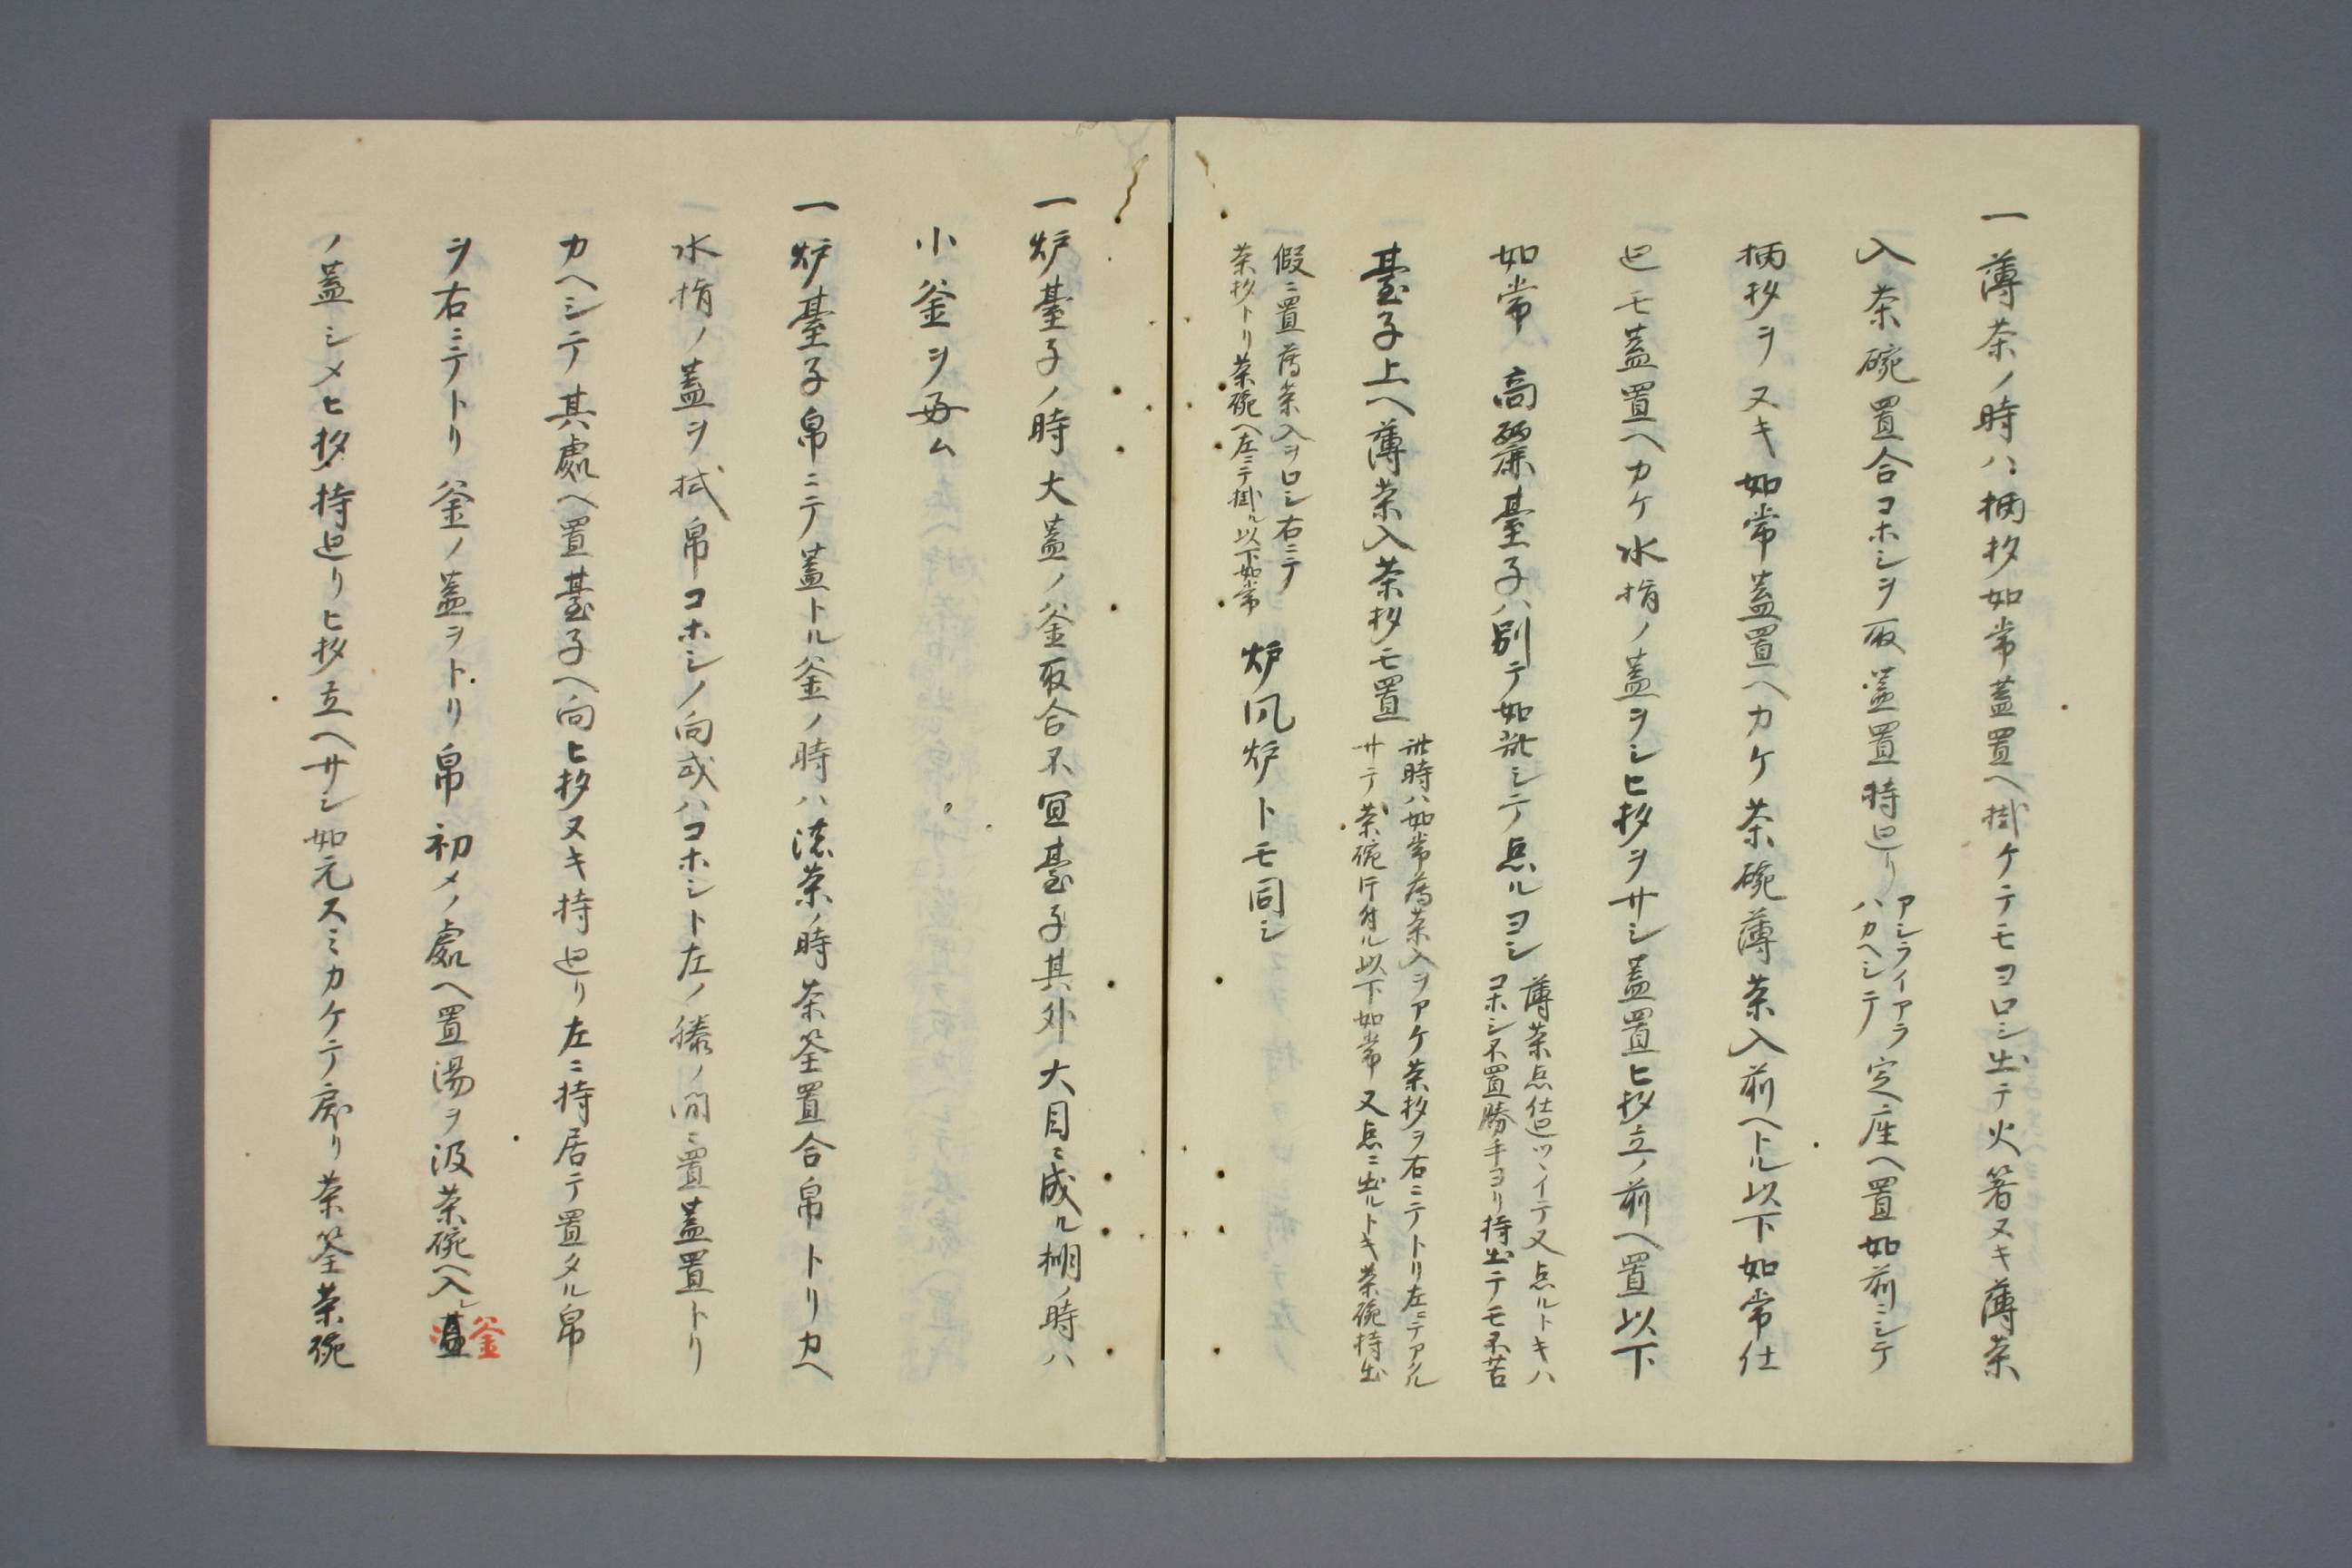 一薄茶ノ時ハ柄杓如常蓋置ヘ掛ケテモヨロシ出テ火箸ヌキ薄茶
入茶碗置合コホシヲ取蓋置持廻リ
アシライアラ
ハカヘシテ
定座ヘ置如前ニシテ
柄杓ヲヌキ如常蓋置ヘカケ茶碗薄茶入前ヘトル以下如常仕
廻モ蓋置ヘカケ水指ノ蓋ヲシヒ杓ヲサシ蓋置ヒ杓立ノ前ヘ置以下
如常 高麗臺子ハ別テ如此シテ点ルヨシ
薄茶点仕廻ツヽイテ又点ルトキハ
コホシ不置勝手ヨリ持出テモ不苦
臺子上ヘ薄茶入茶杓モ置
此時ハ如常薄茶入ヲアケ茶杓ヲ右ニテトリ左ニテアル
サテ茶碗片付ル以下如常又点ニ出ルトキ茶碗持出
假ニ置薄茶入ヲロシ右ニテ
茶杓トリ茶碗ヘ左ニテ掛ル以下如常
炉風炉トモ同シ
一炉臺子ノ時大蓋ノ釜取合不宜臺子其外大目ニ成ル棚ノ時ハ
小釜ヲ好ム
一炉臺子帛ニテ蓋トル釜ノ時ハ濃茶ノ時茶筌置合帛トリカヘ
水指ノ蓋ヲ拭帛コホシノ向或ハコホシト左ノ膝ノ間ニ置蓋置トリ
カヘシテ其處ヘ置臺子ヘ向ヒ杓ヌキ持廻リ左ニ持居テ置タル帛
ヲ右ニテトリ釜ノ蓋ヲトリ帛初メノ處ヘ置湯ヲ汲茶碗ヘ入レ釜
ノ蓋シメヒ杓持廻リヒ杓立ヘサシ如元スミカケテ戻リ茶筌茶碗